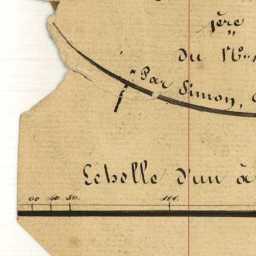 1ère
du N
Par Simon,
Echelle d'un à
60 40 20. 100